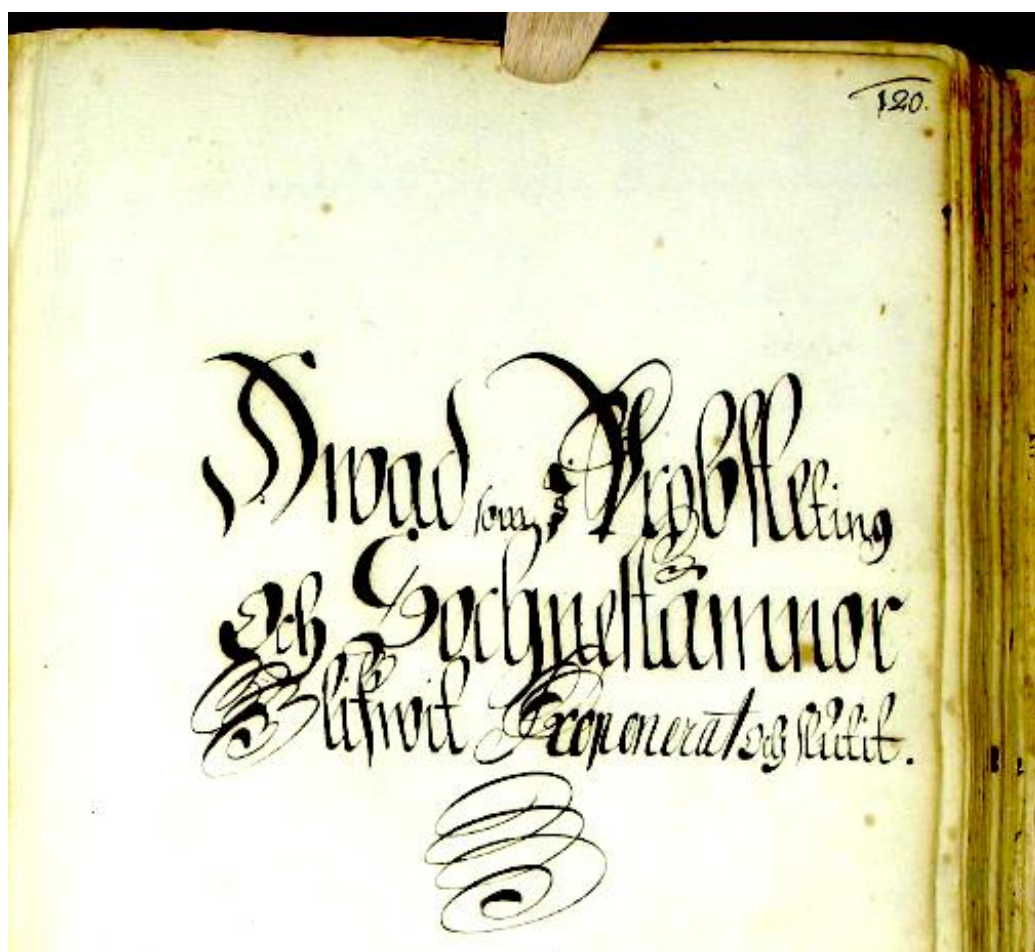 120.
Hwad som i Probsteting
och Sochnestämnor
Blifwit Proponerat och slutit.